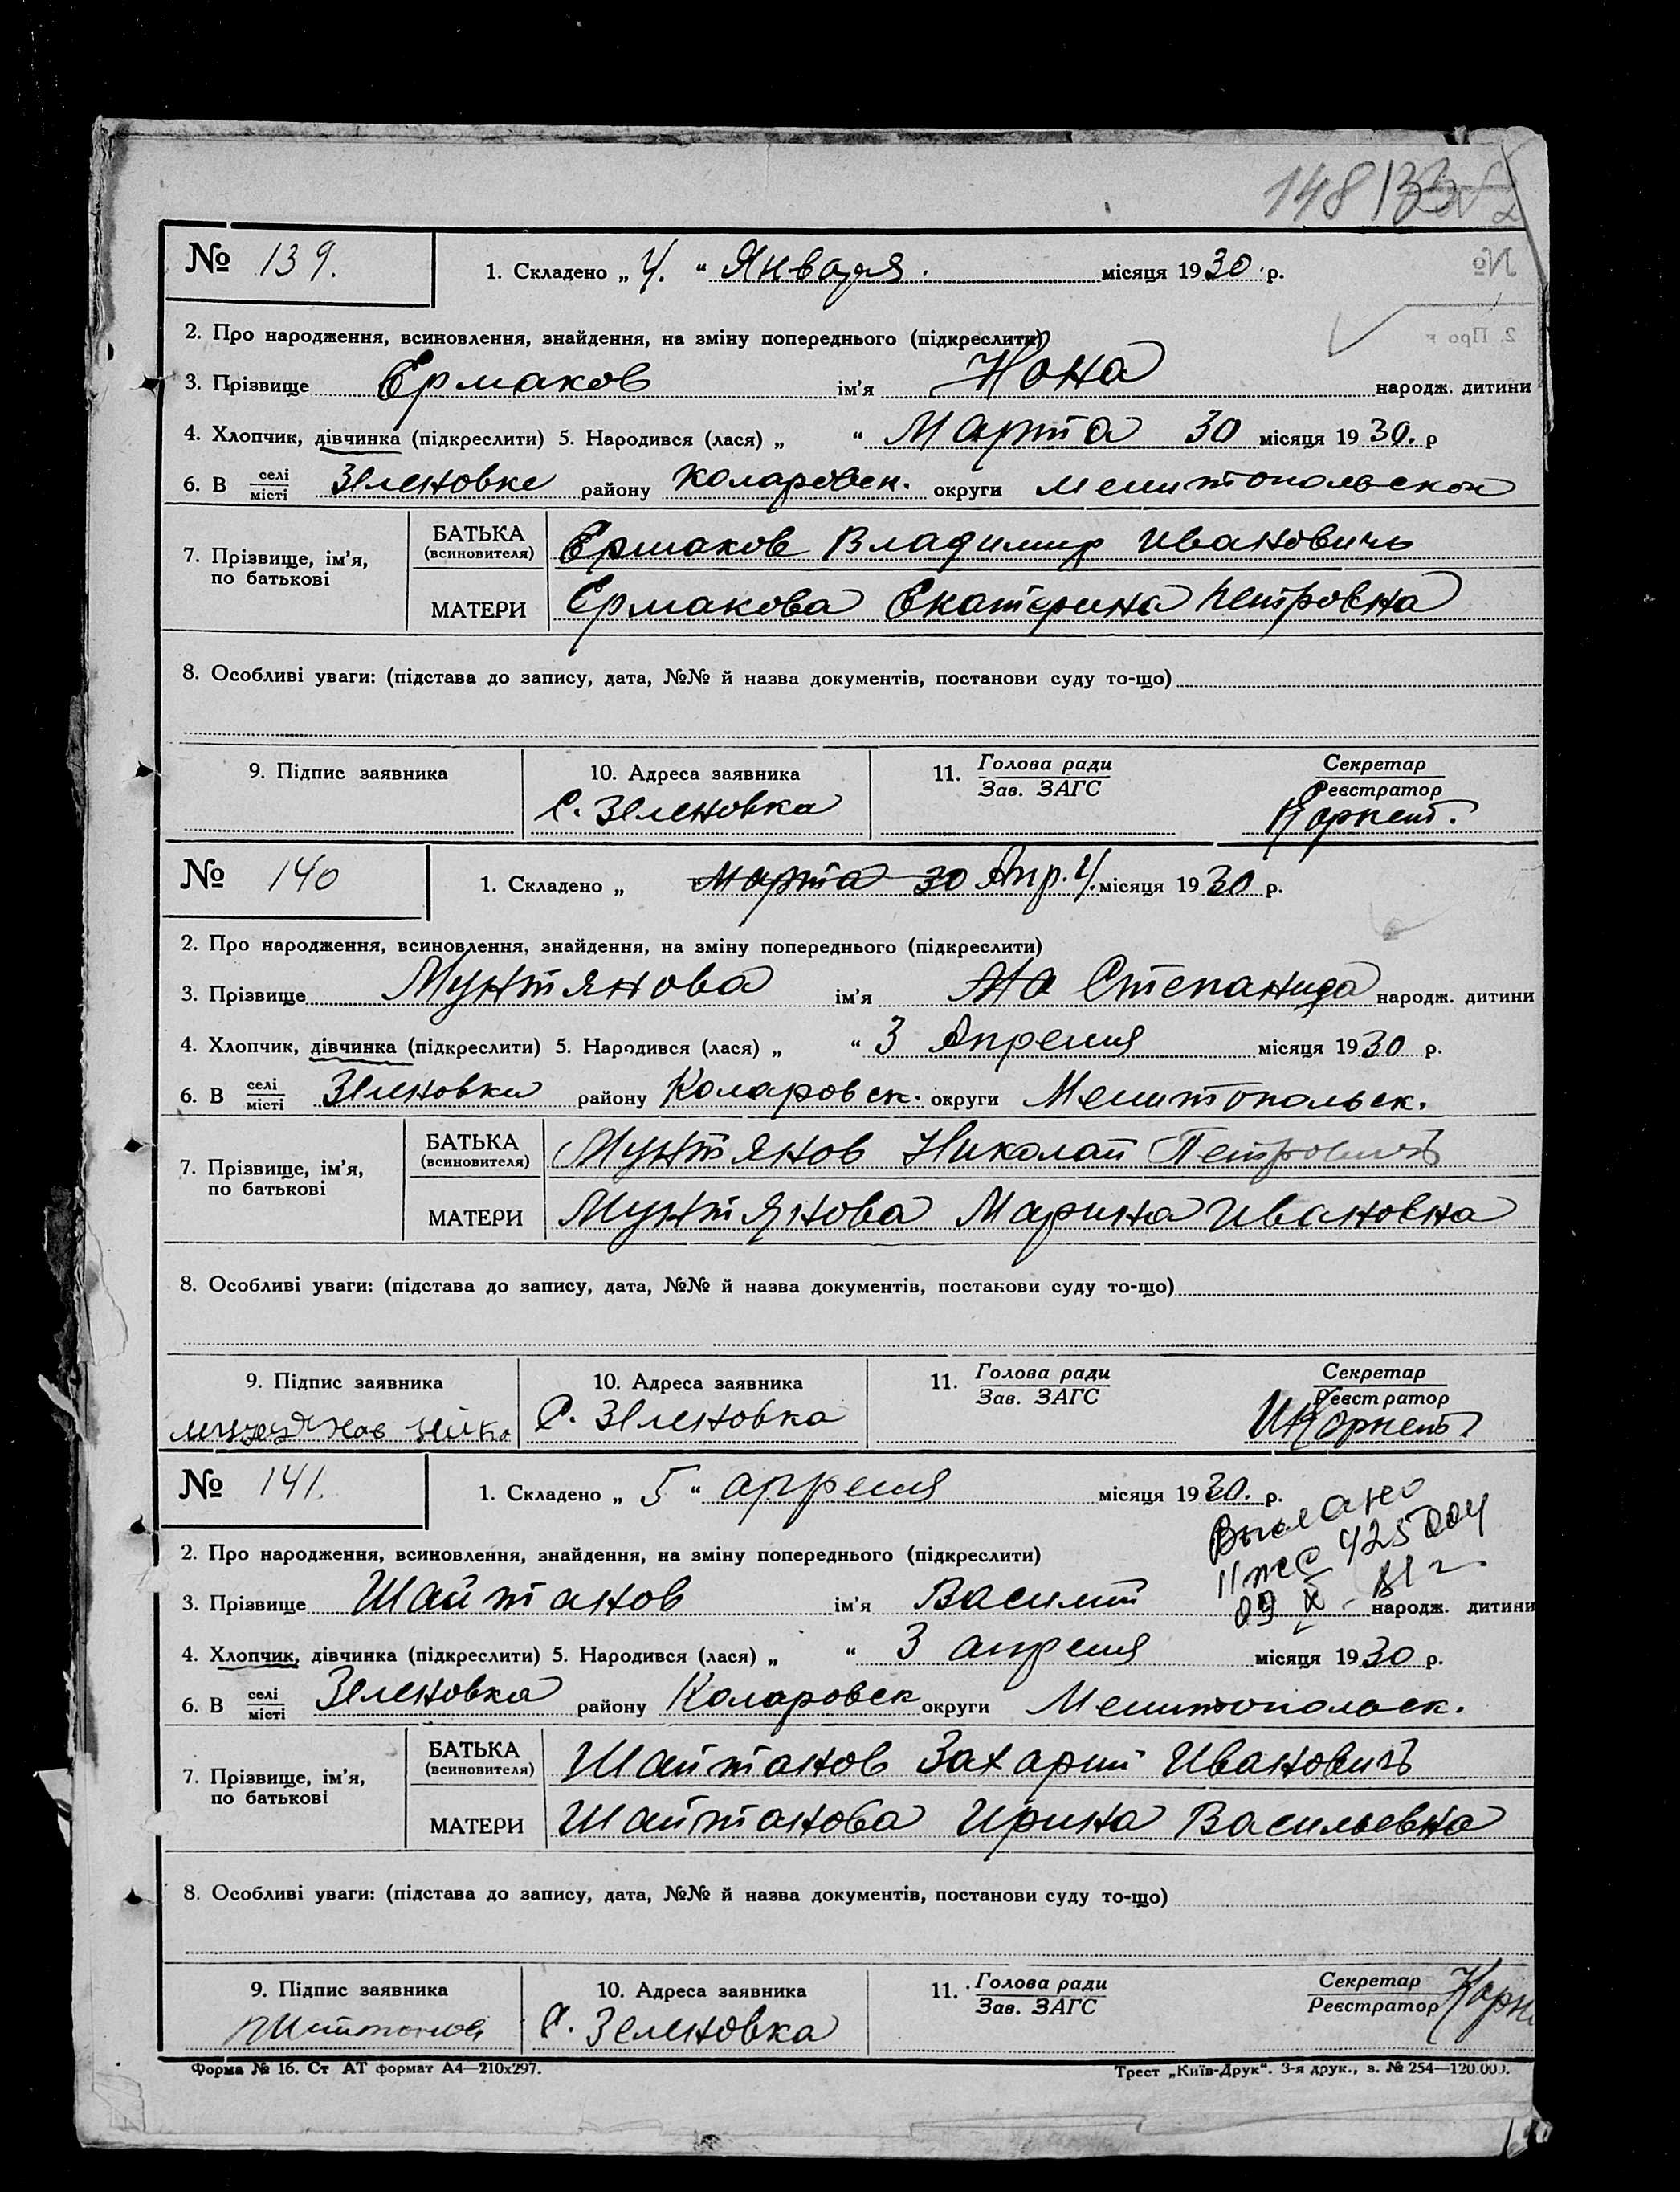 148
№ 139. 1. Складено „ 4. “ Января. місяця 1930 р.
2. Про народження, всиновлення, знайдення, на зміну попереднього (підкреслити)
3. Прізвище Ермаков ім'я Нона народж. дитини
4. Хлопчик, дівчинка (підкреслити) 5. Народився (лася) „ “ Марта 30 місяця 1930. р
6. В селі/місті Зеленовке району Коларовск. округи Мелитопольской
7. Прізвище, ім'я, по батькові
БАТЬКА (всиновителя) Ермаков Владимир Ивановичь
МАТЕРИ Ермакова Екатерина Петровна
8. Особливі уваги: (підстава до запису, дата, №№ й назва документів, постанови суду то-що)
9. Підпис заявника 10. Адреса заявника 11. Голова ради/Зав. ЗАГС Секретар/Реєстратор
С. Зеленовка
№ 140 1. Складено „ Марта 30 Апр. 4. місяця 1930 р.
2. Про народження, всиновлення, знайдення, на зміну попереднього (підкреслити)
3. Прізвище Мунтянова ім'я Степанида народж. дитини
4. Хлопчик, дівчинка (підкреслити) 5. Народився (лася) „ “ 3 Апреля місяця 1930 р.
6. В селі/місті Зеленовки району Коларовск. округи Мелитопольск.
7. Прізвище, ім'я, по батькові
БАТЬКА (всиновителя) Мунтянов Николай Петровичъ
МАТЕРИ Мунтянова Марина Ивановна
8. Особливі уваги: (підстава до запису, дата, №№ й назва документів, постанови суду то-що)
9. Підпис заявника 10. Адреса заявника 11. Голова ради/Зав. ЗАГС Секретар/Реєстратор
С. Зеленовка
№ 141. 1. Складено „ 5 “ апреля місяця 1930. р.
2. Про народження, всиновлення, знайдення, на зміну попереднього (підкреслити)
3. Прізвище Шайтанов ім'я Василий народж. дитини
4. Хлопчик, дівчинка (підкреслити) 5. Народився (лася) „ “ 3 апреля місяця 1930 р.
6. В селі/місті Зеленовка району Коларовск округи Мелитопольск.
7. Прізвище, ім'я, по батькові
БАТЬКА (всиновителя) Шайтанов Захарий Ивановичъ
МАТЕРИ Шайтанова Ирина Васильевна
8. Особливі уваги: (підстава до запису, дата, №№ й назва документів, постанови суду то-що)
9. Підпис заявника 10. Адреса заявника 11. Голова ради/Зав. ЗАГС Секретар/Реєстратор
С. Зеленовка
Форма № 16. Ст АТ формат А4—210х297. Трест „Київ-Друк“. 3-я друк., з. № 254—120.000.